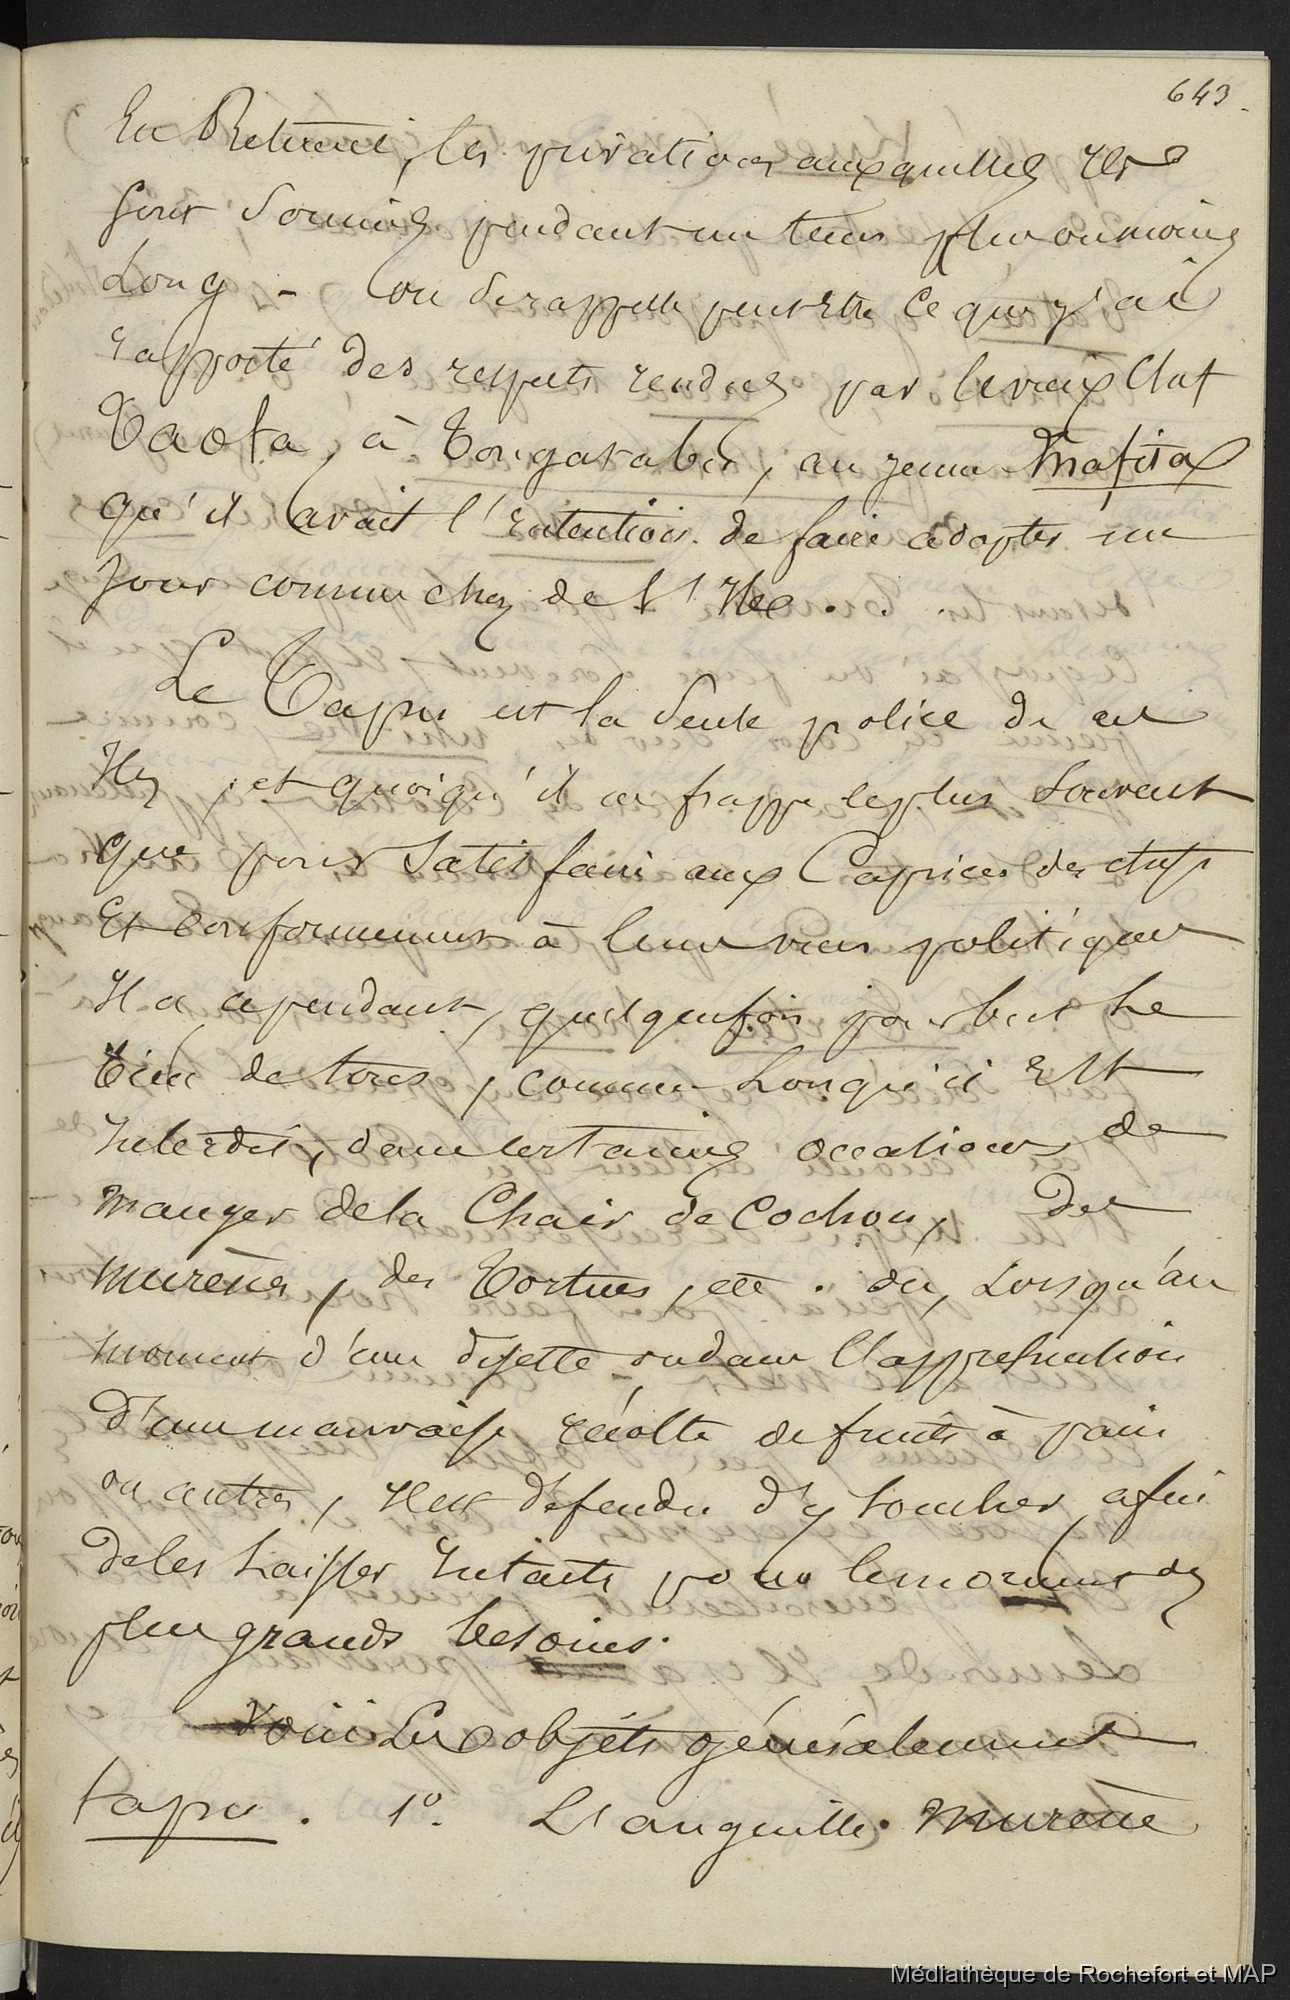 643.
En Retraite, les privations auxquelles ils
sont Soumis pendant un tems plus ou moins
Long - on se rappelle peut Etre ce que j'ai
rapporté des respects rendus par le vieux Chef
Taofa, à Tongatabu, au jeune Mafita
qu'il avait l'intention de faire adopter un
jour comme chef de l'Ile.
Le Tapu est la Seule police de ces
Iles, et quoiqu'il ne frappe le plus Souvent
que pour Satisfaire aux Caprices des chefs
Et Conformement à leurs vues politiques
Il a cependant, quelquefois pour but Le
bien de tous, comme Lorsqu'il Est
Interdit, dans certaines occasions de
manger de la Chair de Cochon, Des
murènes, des Tortues, etc. ou, Lorsqu'au
moment d'une disette ou dans l'appréhension
d'une mauvaise récolte de fruits à pain
ou autres, Il est défendu d'y toucher, afin
de les Laisser Intacts pour les momens des
plus grands besoins.
Voici Les objets généralement
tapu. 1°. L'anguille. murène